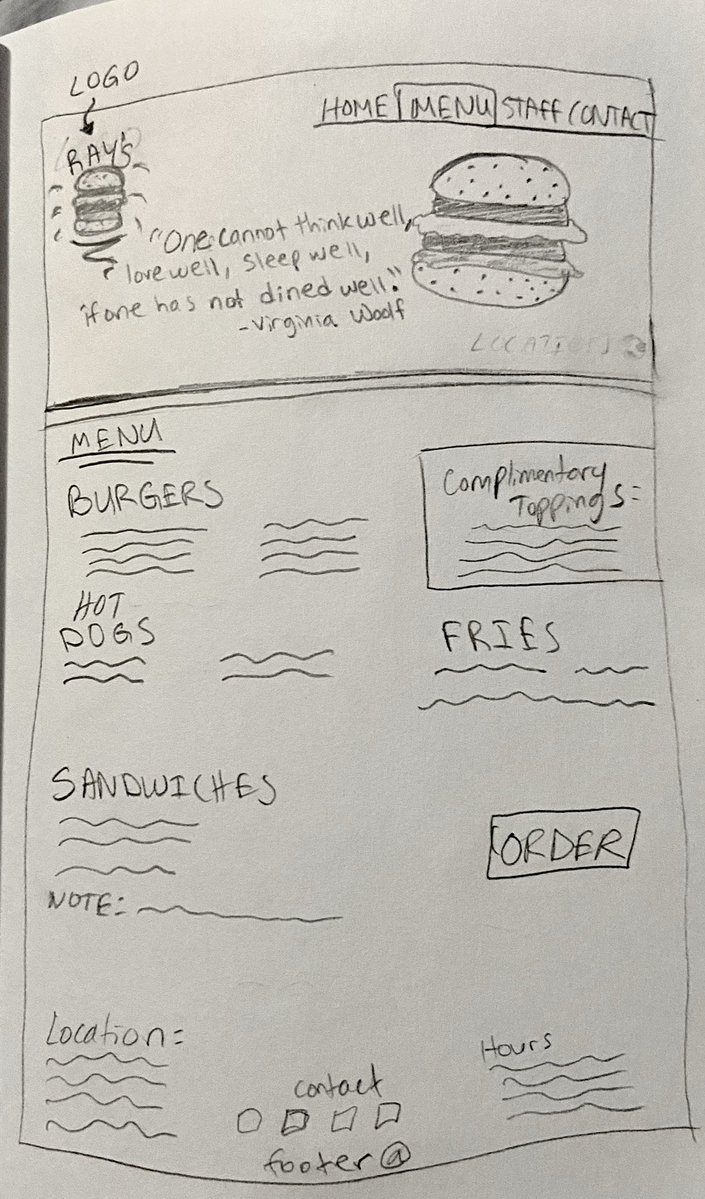 LOGO
HOME MENU STAFF CONTACT
RAY'S
"One cannot think well,
love well, sleep well,
if one has not dined well."
-Virginia Woolf
LOCATION
MENU
BURGERS
Complimentary
Toppings:
HOT
DOGS
FRIES
SANDWICHES
ORDER
NOTE:
Location:
Hours
contact
footer @